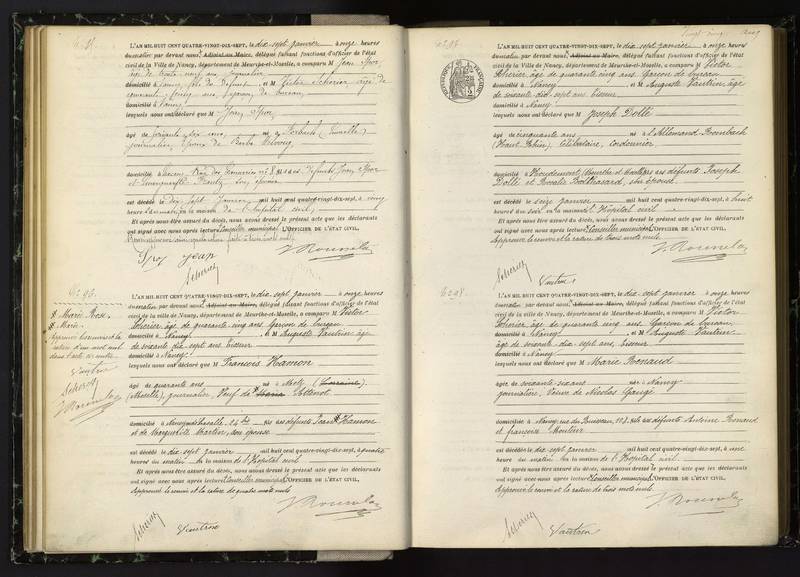 N° 95
L'AN MIL HUIT CENT QUATRE-VINGT-DIX-SEPT, le dix sept janvier à onze heures
du matin par devant nous, Adjoint au Maire, délégué faisant fonctions d'officier de l'état
civil de la Ville de Nancy, département de Meurthe-et-Moselle, a comparu M Jean Spor,
âgé de trente neuf ans, journalier
domicilié à Nancy, fils du défunt, et M Victor Scherier âgé de
quarante cinq ans, garçon de bureau
domicilié à Nancy
lesquels nous ont déclaré que M Jean Spor
âgé de soixante six ans, né à Forbach (Moselle)
journalier, époux de Barbe
domicilié à Nancy, rue des n° 8, fils des défunts Jean Spor
et son épouse
est décédé le dix sept janvier mil huit cent quatre-vingt-dix-sept, à cinq
heures du matin en la maison de l'hôpital civil,
Et après nous être assuré du décès, nous avons dressé le présent acte que les déclarants
ont signé avec nous après lecture. Conseiller municipal L'OFFICIER DE L'ÉTAT CIVIL.
Spor Jean
Scherier
N° 96.
L'AN MIL HUIT CENT QUATRE-VINGT-DIX-SEPT, le dix sept janvier à onze heures
du matin par devant nous, Adjoint au Maire, délégué faisant fonctions d'officier de l'état
civil de la Ville de Nancy, département de Meurthe-et-Moselle, a comparu M Victor
Scherier, âgé de quarante cinq ans, Garçon de bureau
domicilié à Nancy, et M Auguste Vautrin âgé
de soixante dix sept ans, tisseur
domicilié à Nancy
lesquels nous ont déclaré que M François Hamon
âgé de quarante ans né à Metz (Lorraine)
(Moselle), journalier, Veuf de Marie Attenot
domicilié à Nancy, 24 fils des défunts Jean Hamon
et de Marguerite Martin, son épouse
est décédé le dix sept janvier mil huit cent quatre-vingt-dix-sept, à quatre
heures du matin en la maison de l'Hôpital civil
Et après nous être assuré du décès, nous avons dressé le présent acte que les déclarants
ont signé avec nous après lecture. Conseiller municipal L'OFFICIER DE L'ÉTAT CIVIL.
Approuvé le renvoi et la rature de quatre mots nuls
Scherier
Vautrin
Marie Rose
Marie
Vautrin
Scherier
Vingt cinq
N° 97
L'AN MIL HUIT CENT QUATRE-VINGT-DIX-SEPT, le dix sept janvier à onze heures
du matin par devant nous, Adjoint au Maire, délégué faisant fonctions d'officier de l'état
civil de la Ville de Nancy, département de Meurthe-et-Moselle, a comparu M Victor
Scherier, âgé de quarante cinq ans, Garçon de bureau
domicilié à Nancy, et M Auguste Vautrin, âgé
de soixante dix sept ans tisseur
domicilié à Nancy
lesquels nous ont déclaré que M Joseph Dollé
âgé de cinquante ans né à l'Allemand Rombach
(Haut Rhin), célibataire, cordonnier
domicilié à Houdemont (Meurthe et Moselle) fils des défunts Joseph
Dollé et Rosalie Balthazard, son épouse
est décédé le seize janvier mil huit cent quatre-vingt-dix-sept, à huit
heures du soir en la maison de l'Hôpital civil
Et après nous être assuré du décès, nous avons dressé le présent acte que les déclarants
ont signé avec nous après lecture. Conseiller municipal L'OFFICIER DE L'ÉTAT CIVIL.
Approuvé le renvoi et la rature de trois mots nuls
Scherier
Vautrin
N° 98
L'AN MIL HUIT CENT QUATRE-VINGT-DIX-SEPT, le dix sept janvier à onze heures
du matin par devant nous, Adjoint au Maire, délégué faisant fonctions d'officier de l'état
civil de la Ville de Nancy, département de Meurthe-et-Moselle, a comparu M Victor
Scherier, âgé de quarante cinq ans, Garçon de bureau
domicilié à Nancy, et M Auguste Vautrin
âgé de soixante dix sept ans, tisseur
domicilié à Nancy
lesquels nous ont déclaré que M Marie Renaud
âgée de soixante six ans née à Nancy
journalière, Veuve de Nicolas Gaugé
domiciliée à Nancy, rue du Ruisseau, n° 8 fille des défunts Antoine Renaud
et françoise Mouteur
est décédée le dix sept janvier mil huit cent quatre-vingt-dix-sept, à une
heure du matin en la maison de l'Hôpital civil
Et après nous être assuré du décès, nous avons dressé le présent acte que les déclarants
ont signé avec nous après lecture. Conseiller municipal L'OFFICIER DE L'ÉTAT CIVIL.
Approuvé le renvoi et la rature de trois mots nuls
Scherier
Vautrin